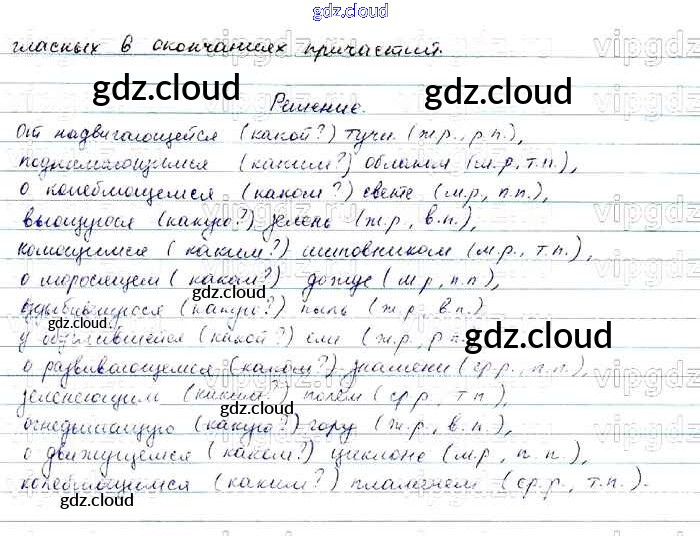 gdz.cloud
гласных в окончаниях причастий.
gdz.cloud gdz.cloud
Решение.
От надвигающейся (какой?) тучи (ж.р., р.п.),
поднимающимся (каким?) облаком (с.р., т.п.),
о колеблющемся (каком?) свете (м.р., п.п.),
вьющуюся (какую?) зелень (ж.р., в.п.),
колющимся (каким?) шиповником (м.р., т.п.),
о моросящем (каком?) дожде (м.р., п.п.),
gdz.cloud
(какую?) пыль (ж.р., в.п.)
gdz.cloud gdz.cloud
у (какой?) ели (ж.р., р.п.
о развивающемся (каком?) знамени (ср.р., п.п.),
зеленеющим (каким?) полем (ср.р., т.п)
gdz.cloud
огнедышащую (какую?) гору (ж.р., в.п.),
о движущемся (каком?) циклоне (м.р., п.п.),
колеблющимся (каким?) пламенем (ср.р., т.п.).
gdz.cloud gdz.cloud